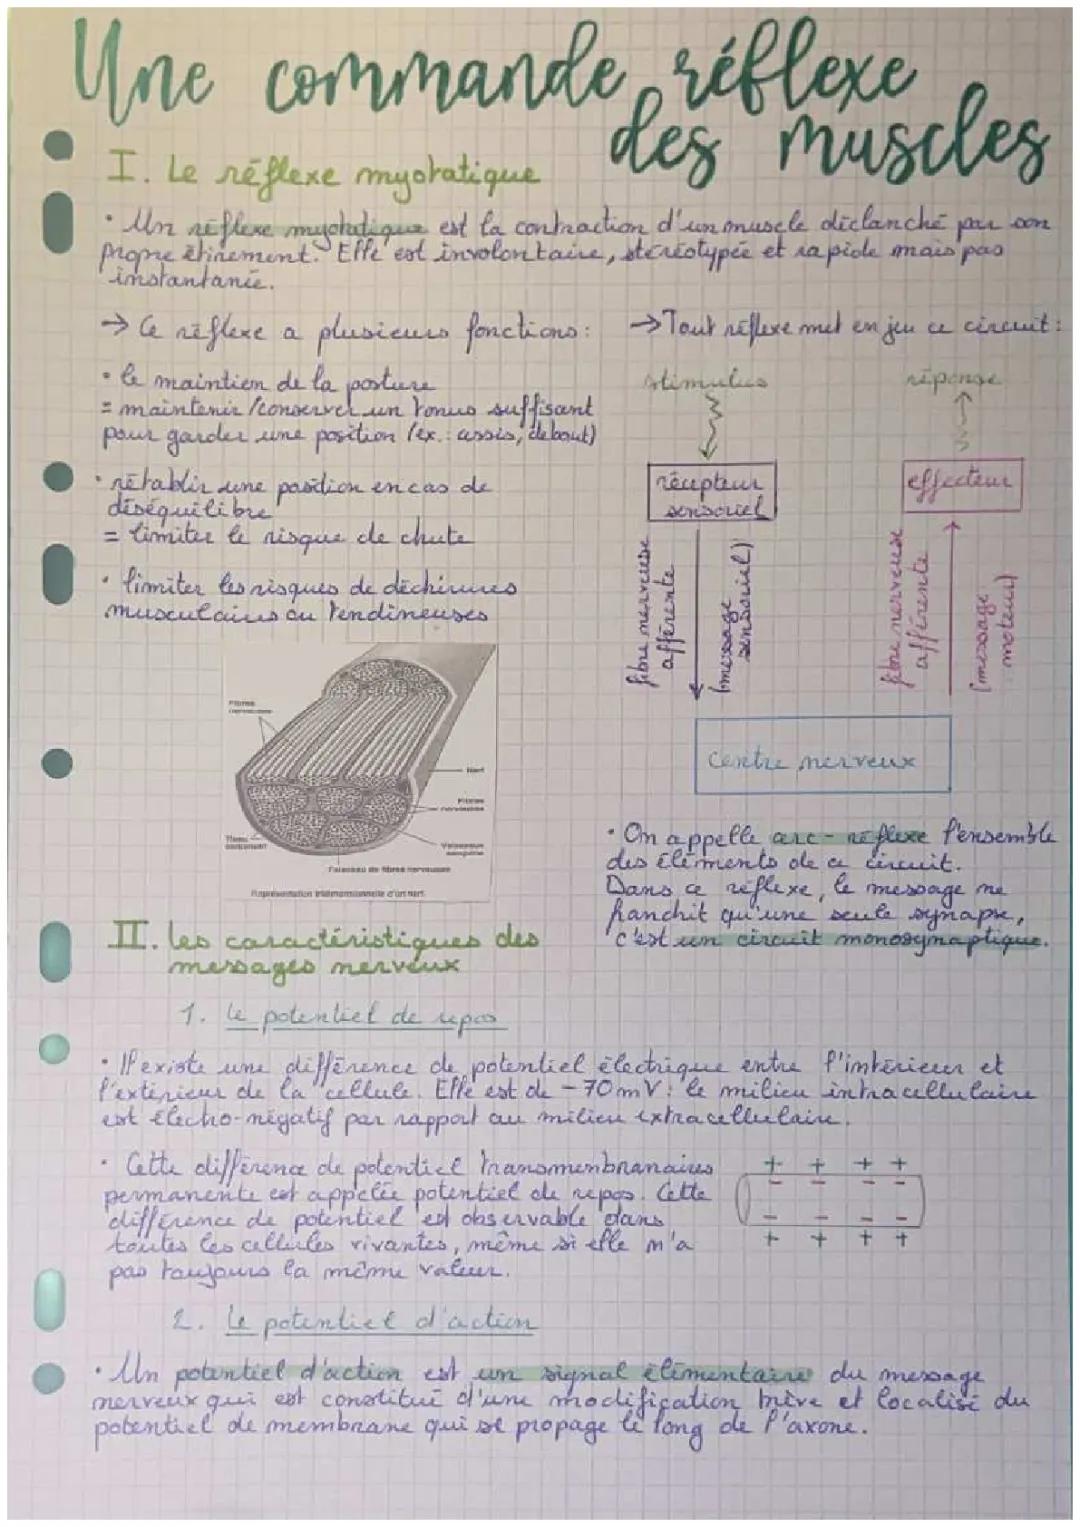 Une commande réflexe
des muscles
I. Le réflexe myotatique
• Un réflexe myotatique est la contraction d'un muscle déclanché par son
propre étirement. Elle est involontaire, stéréotypée et rapide mais pas
instantanée.
→ Ce réflexe a plusieurs fonctions :
• le maintien de la posture
= maintenir/conserver un tonus suffisant
pour garder une position (ex.: assis, debout)
• rétablir une position en cas de
déséquilibre
= limiter le risque de chute
• limiter les risques de déchirures
musculaires ou tendineuses
→ Tout réflexe met en jeu ce circuit :
stimulus
réponse
récepteur
sensoriel
effecteur
fibre nerveuse
afférente
(message
sensoriel)
fibre nerveuse
afférente
(message
moteur)
centre nerveux
Fibres
nerveuses
Nerf
Fibres
nerveuses
Tissu
conjonctif
Vaisseaux
sanguins
Faisceau de fibres nerveuses
Représentation tridimensionnelle d'un nerf
• On appelle arc-réflexe l'ensemble
des éléments de ce circuit.
Dans ce réflexe, le message ne
franchit qu'une seule synapse,
c'est un circuit monosynaptique.
II. les caractéristiques des
messages nerveux
1. le potentiel de repos
• Il existe une différence de potentiel électrique entre l'intérieur et
l'extérieur de la cellule. Elle est de -70mV : le milieu intracellulaire
est électro-négatif par rapport au milieu extracellulaire.
• Cette différence de potentiel transmembranaires
permanente est appelée potentiel de repos. Cette
différence de potentiel est observable dans
toutes les cellules vivantes, même si elle n'a
pas toujours la même valeur.
+ + + +
- - - -
- - - -
+ + + +
2. Le potentiel d'action
• Un potentiel d'action est un signal élémentaire du message
nerveux qui est constitué d'une modification brève et localisé du
potentiel de membrane qui se propage le long de l'axone.